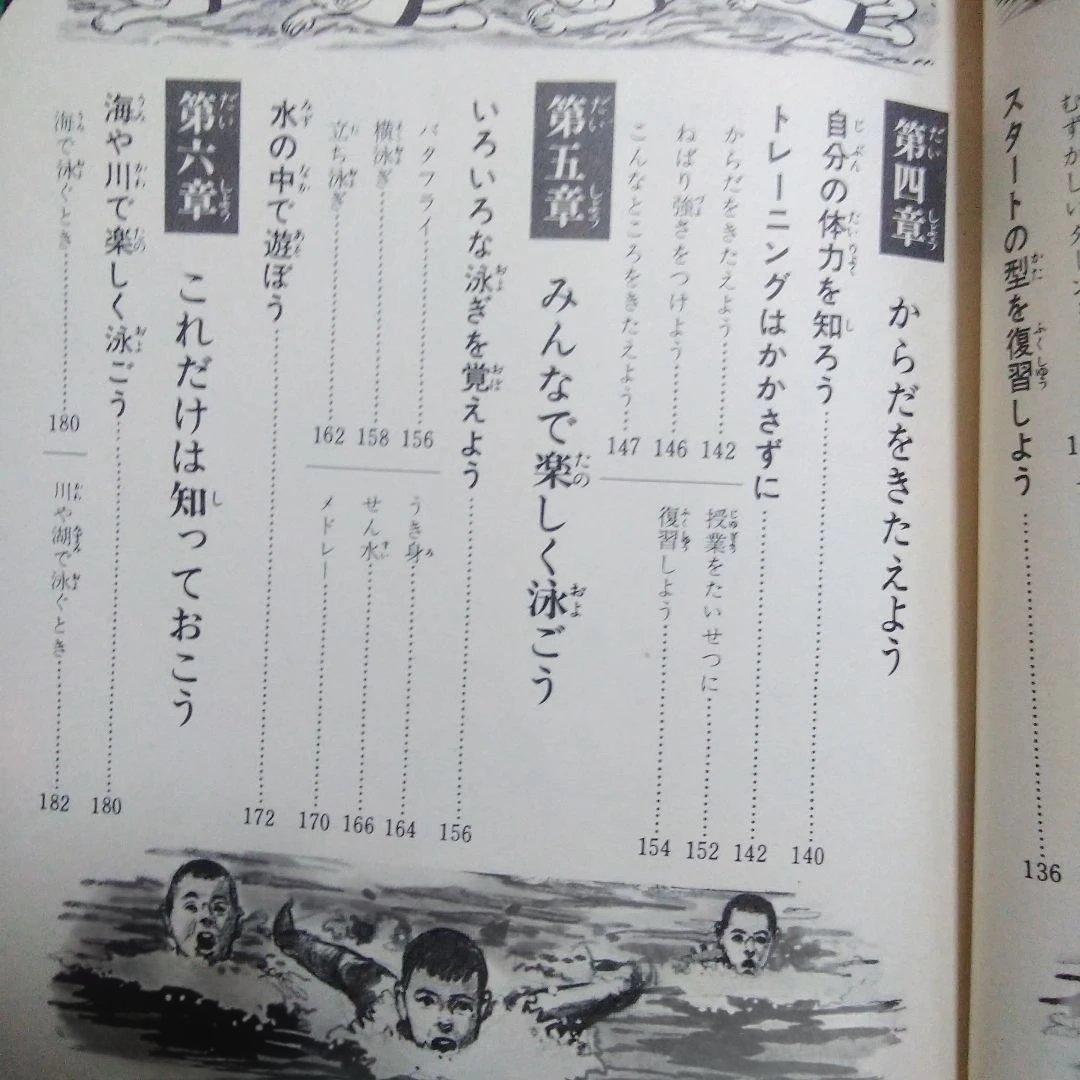 スタートの型を復習しよう……136
第四章 からだをきたえよう
自分の体力を知ろう……140
トレーニングはかかさずに……142
からだをきたえよう……142
ねばり強さをつけよう……146
こんなところをきたえよう……147
授業をたいせつに……152
復習しよう……154
第五章 みんなで楽しく泳ごう
いろいろな泳ぎを覚えよう……156
バタフライ……156
横泳ぎ……158
立ち泳ぎ……162
うき身……164
せん水……166
メドレー……170
水の中で遊ぼう……172
第六章 これだけは知っておこう
海や川で楽しく泳ごう……180
海で泳ぐとき……180
川や湖で泳ぐとき……182